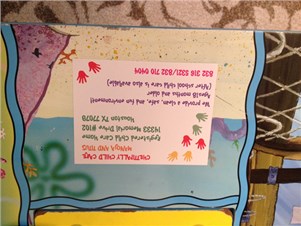 CRITTERVILLE CHILD CARE
Registered Child Care Home
14333 Memorial Drive #102
Houston TX 77079
We provide a clean, safe, and fun environment!
Ages 18 months and older
(After school child care is also available)
832 316 5321/832 710 0404